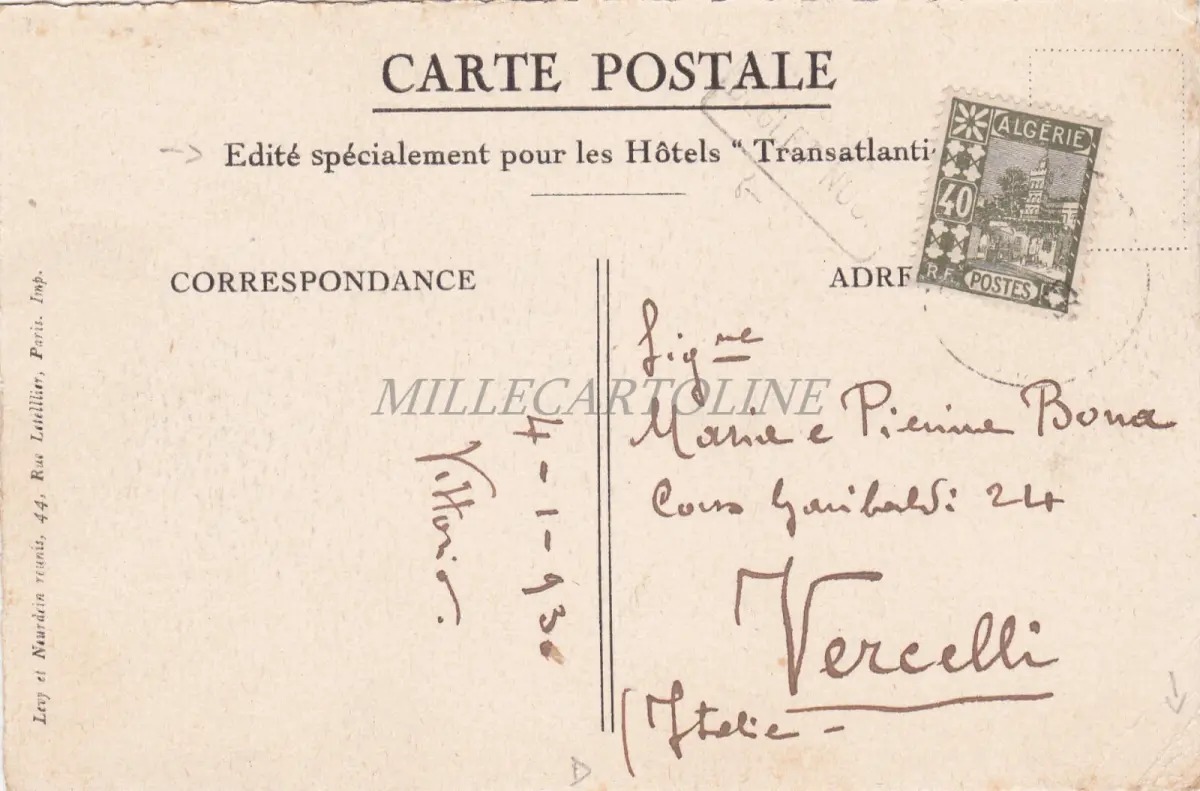 CARTE POSTALE
Edité spécialement pour les Hôtels “ Transatlanti
CORRESPONDANCE
ADRE
ALGÉRIE
40
R.F.
POSTES
Sigme
Maria e Pierina Bona
Corso Garibaldi 24
Vercelli
(Italie -
4-1-930
Vittorio.
Levy et Neurdein réunis, 44, Rue Letellier, Paris. Imp.
MILLECARTOLINE